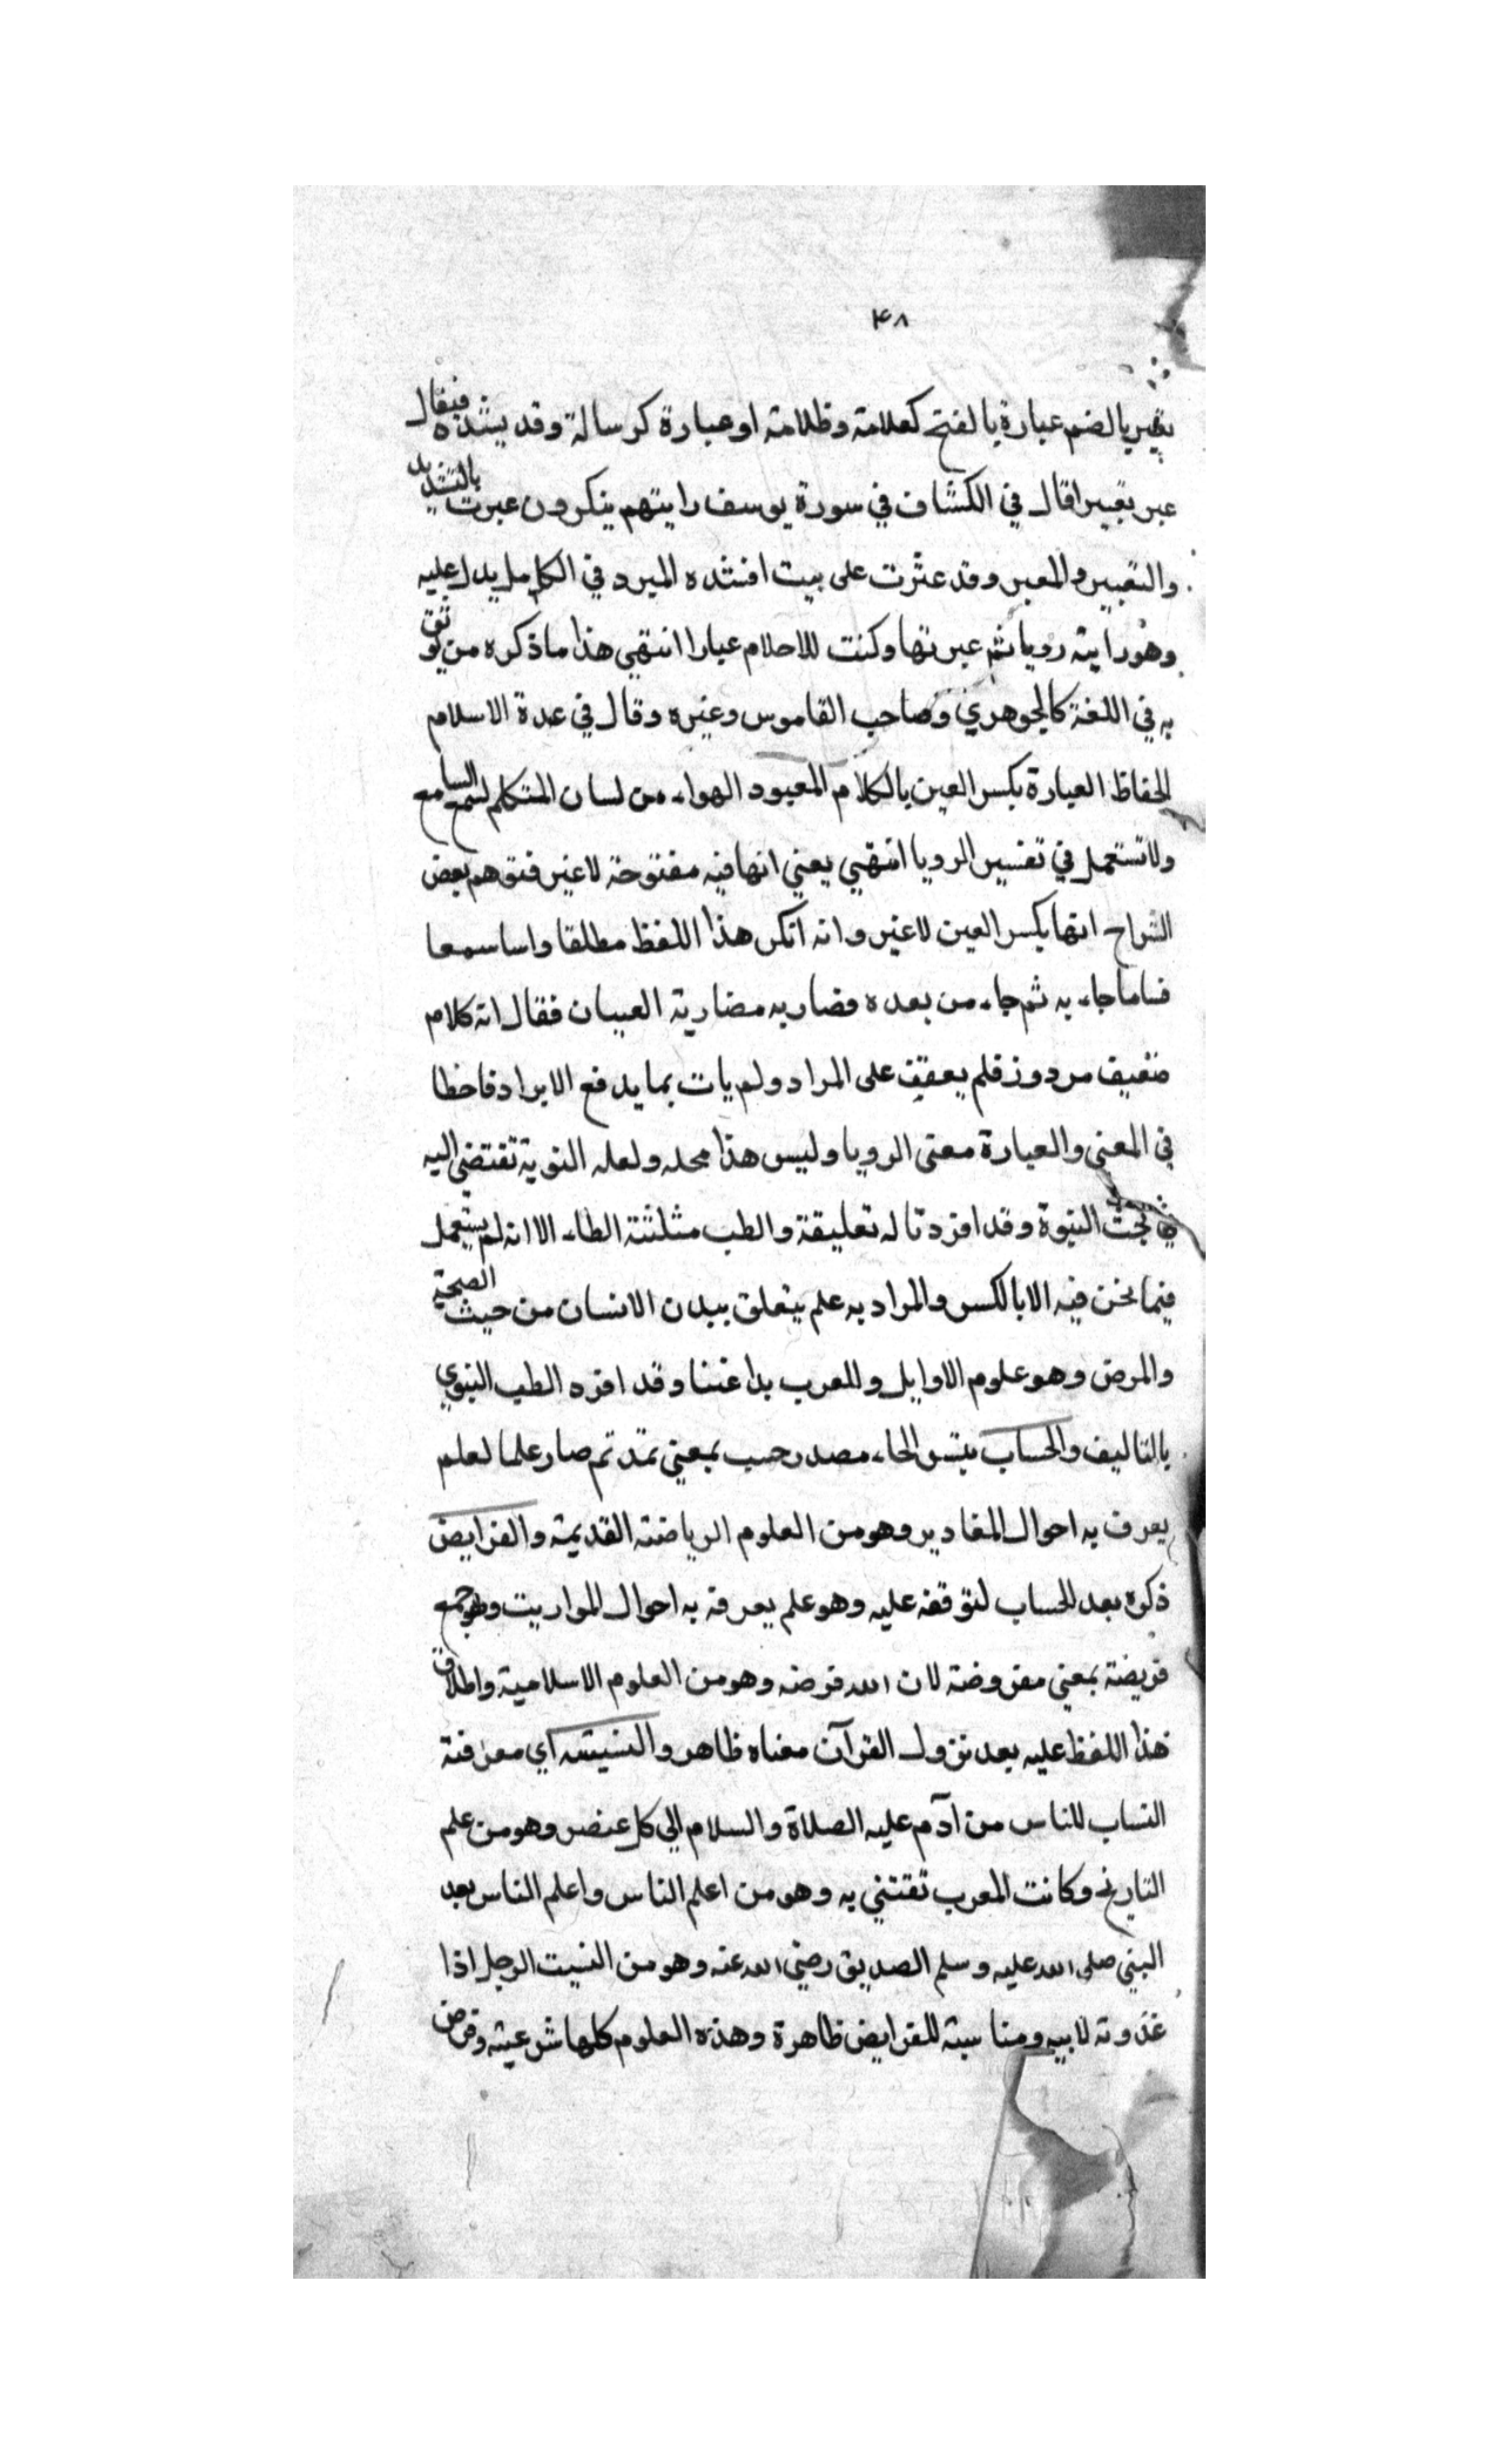 ٤٨
يعبر بالضم عبارة بالفتح كعلامة وظلامة او عبارة كرسالة وقد يشدده فيقال
عبر تعبيرا قال في الكشاف في سورة يوسف رايتهم ينكرون عبرت بالتشديد
والتعبير والمعبر وقد عثرت على بيت انشده المبرد في الكامل يدل عليه
وهو رايته رويا ثم عبرتها وكنت للاحلام عبارا انتهى هذا ما ذكره من يوثق
به في اللغة كالجوهري وصاحب القاموس وغيره وقال في عدة الاسلام
الحفاظ العبارة بكسر العين بالكلام المعبود الهواء من لسان المتكلم لسمع السامع
ولا تستعمل في تفسير الرويا انتهى يعني انها فيه مفتوحة لا غير فتوهم بعض
الشراح انها بكسر العين لا غير وانه انكر هذا اللفظ مطلقا واسا سمعا
فساما جاء به ثم جاء من بعده فضاربه مضاربة العبيان فقال انه كلام
ضعيف مردود فلم يعقف على المراد ولم يات بما يدفع الايراد فاخطا
في المعنى والعبارة معتى الرويا وليس هذا محله ولعله النوبة تفتضي اليه
في بحث النبوة وقد افردنا له تعليقة والطب مثلثة الطاء الا انه لم يستعمل
فيما نحن فيه الا بالكسر والمراد به علم يتعلق ببدن الانسان من حيث الصحة
والمرض وهو علوم الاوايل وللعرب بدا عننا وقد افرد الطب النبوي
بالتاليف والحساب بتسر الحاء مصدر حسب بمعنى تمد ثم صار علما لعلم
يعرف به احوال المقادير وهو من العلوم الرياضة القديمة والفرايض
ذكره بعد الحساب لتوقفه عليه وهو علم يعرف به احوال المواريث وهو جمع
فريضة بمعنى مفروضة لان الله فرضه وهو من العلوم الاسلامية واطلاق
هذا اللفظ عليه بعد نزول القرآن معناه ظاهر والنسبته اي معرفة
النساب للناس من آدم عليه الصلاة والسلام الى كل عنصر وهو من علم
التاريخ وكانت العرب تقتني به وهو من اعلم الناس واعلم الناس بعد
النبي صلى الله عليه وسلم الصديق رضي الله عنه وهو من النسبت الرجل اذا
غذوته لابيه ومناسبته للفرايض ظاهرة وهذه العلوم كلها شرعية وفرض